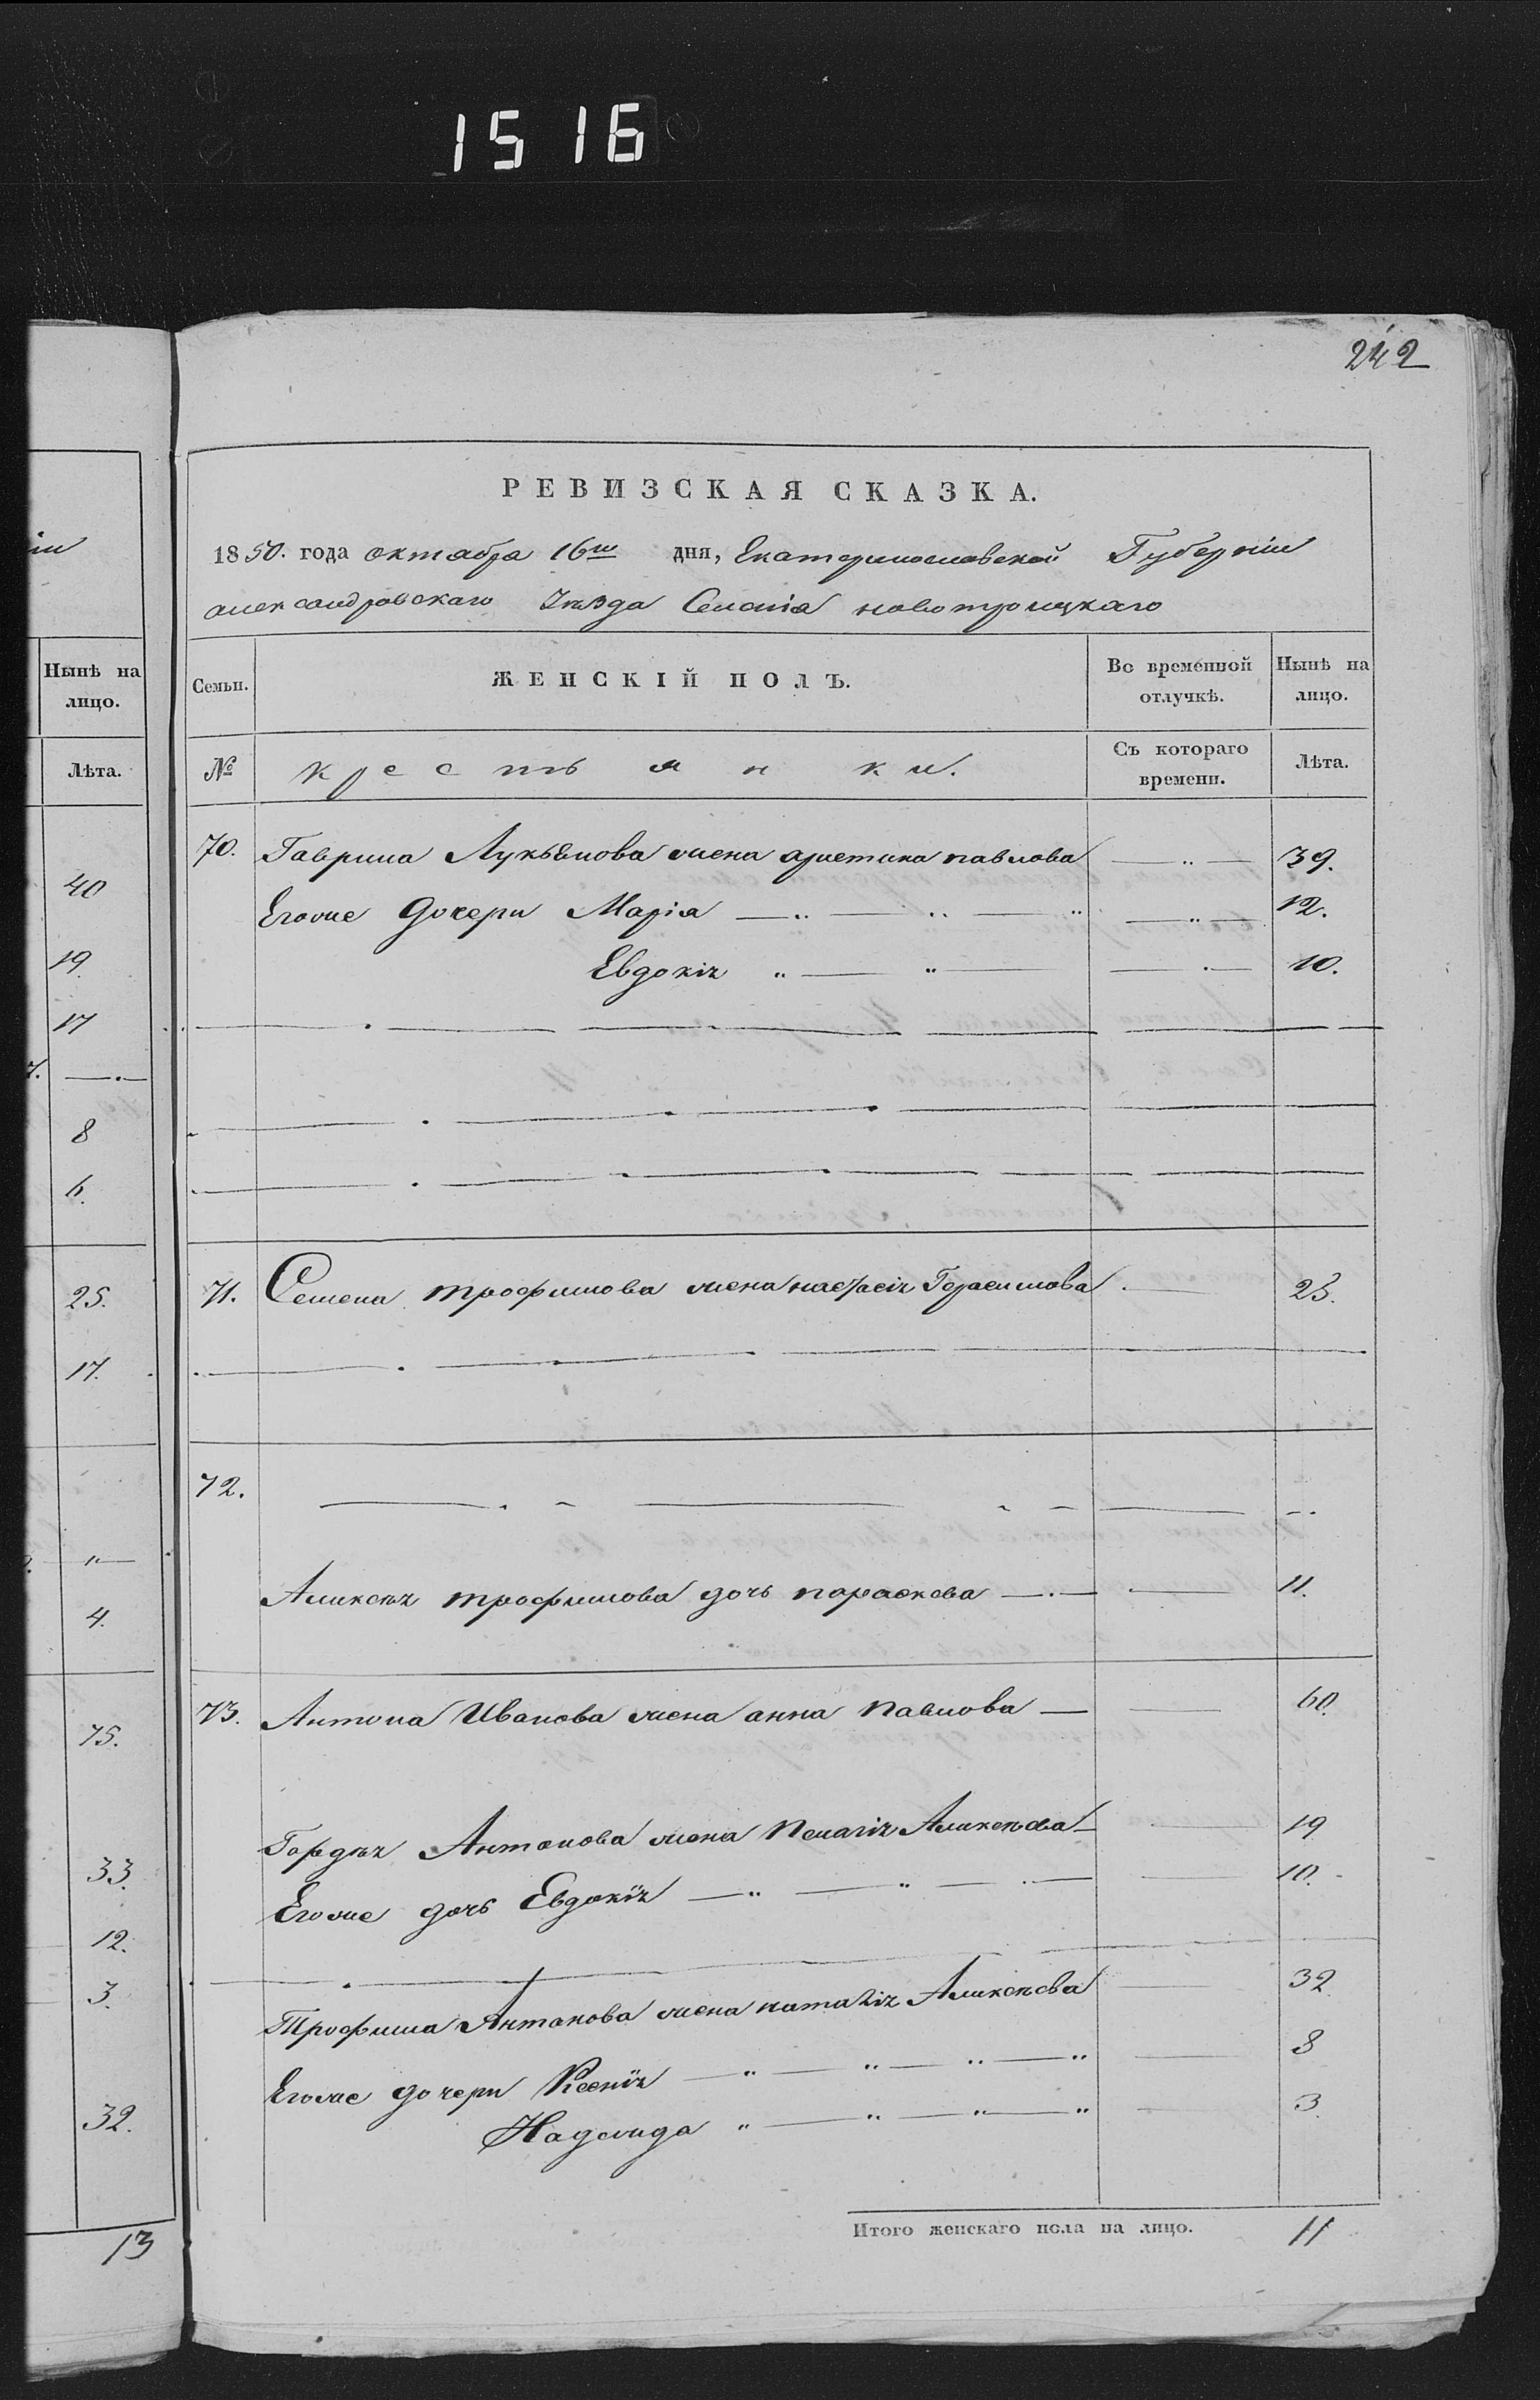 1516
242
РЕВИЗСКАЯ СКАЗКА.
1850. года октабра 16го дня, Екатеринославской Губерніи
александровскаго Уѣзда Селенія новотроицкаго
Семьи. ЖЕНСКІЙ ПОЛЪ. Во временной отлучкѣ. Нынѣ на лицо.
№ крестьянки. Съ котораго времени. Лѣта.
70. Гаврила Лукьенова жена павлова 39.
Егоже Дочери Марія 12.
Евдокія 10.
71. Семена трофимова жена настасія Герасимова 23.
72.
Аликсѣя трофимова дочь параскева 11.
73. Антона Иванова жена анна Павлова 60.
Гордѣя Антонова жена Пелагія Аликсѣева 19
Егоже дочь Евдокія 10.
Трофима Антонова жена наталія Аликсѣева 32
Егоже дочери Ксенія 8
Надежда 3.
Итого женскаго пола на лицо. 11
Нынѣ на лицо.
Лѣта.
40
19
17
8
6.
25.
17.
4.
75.
33.
12.
3.
32.
13